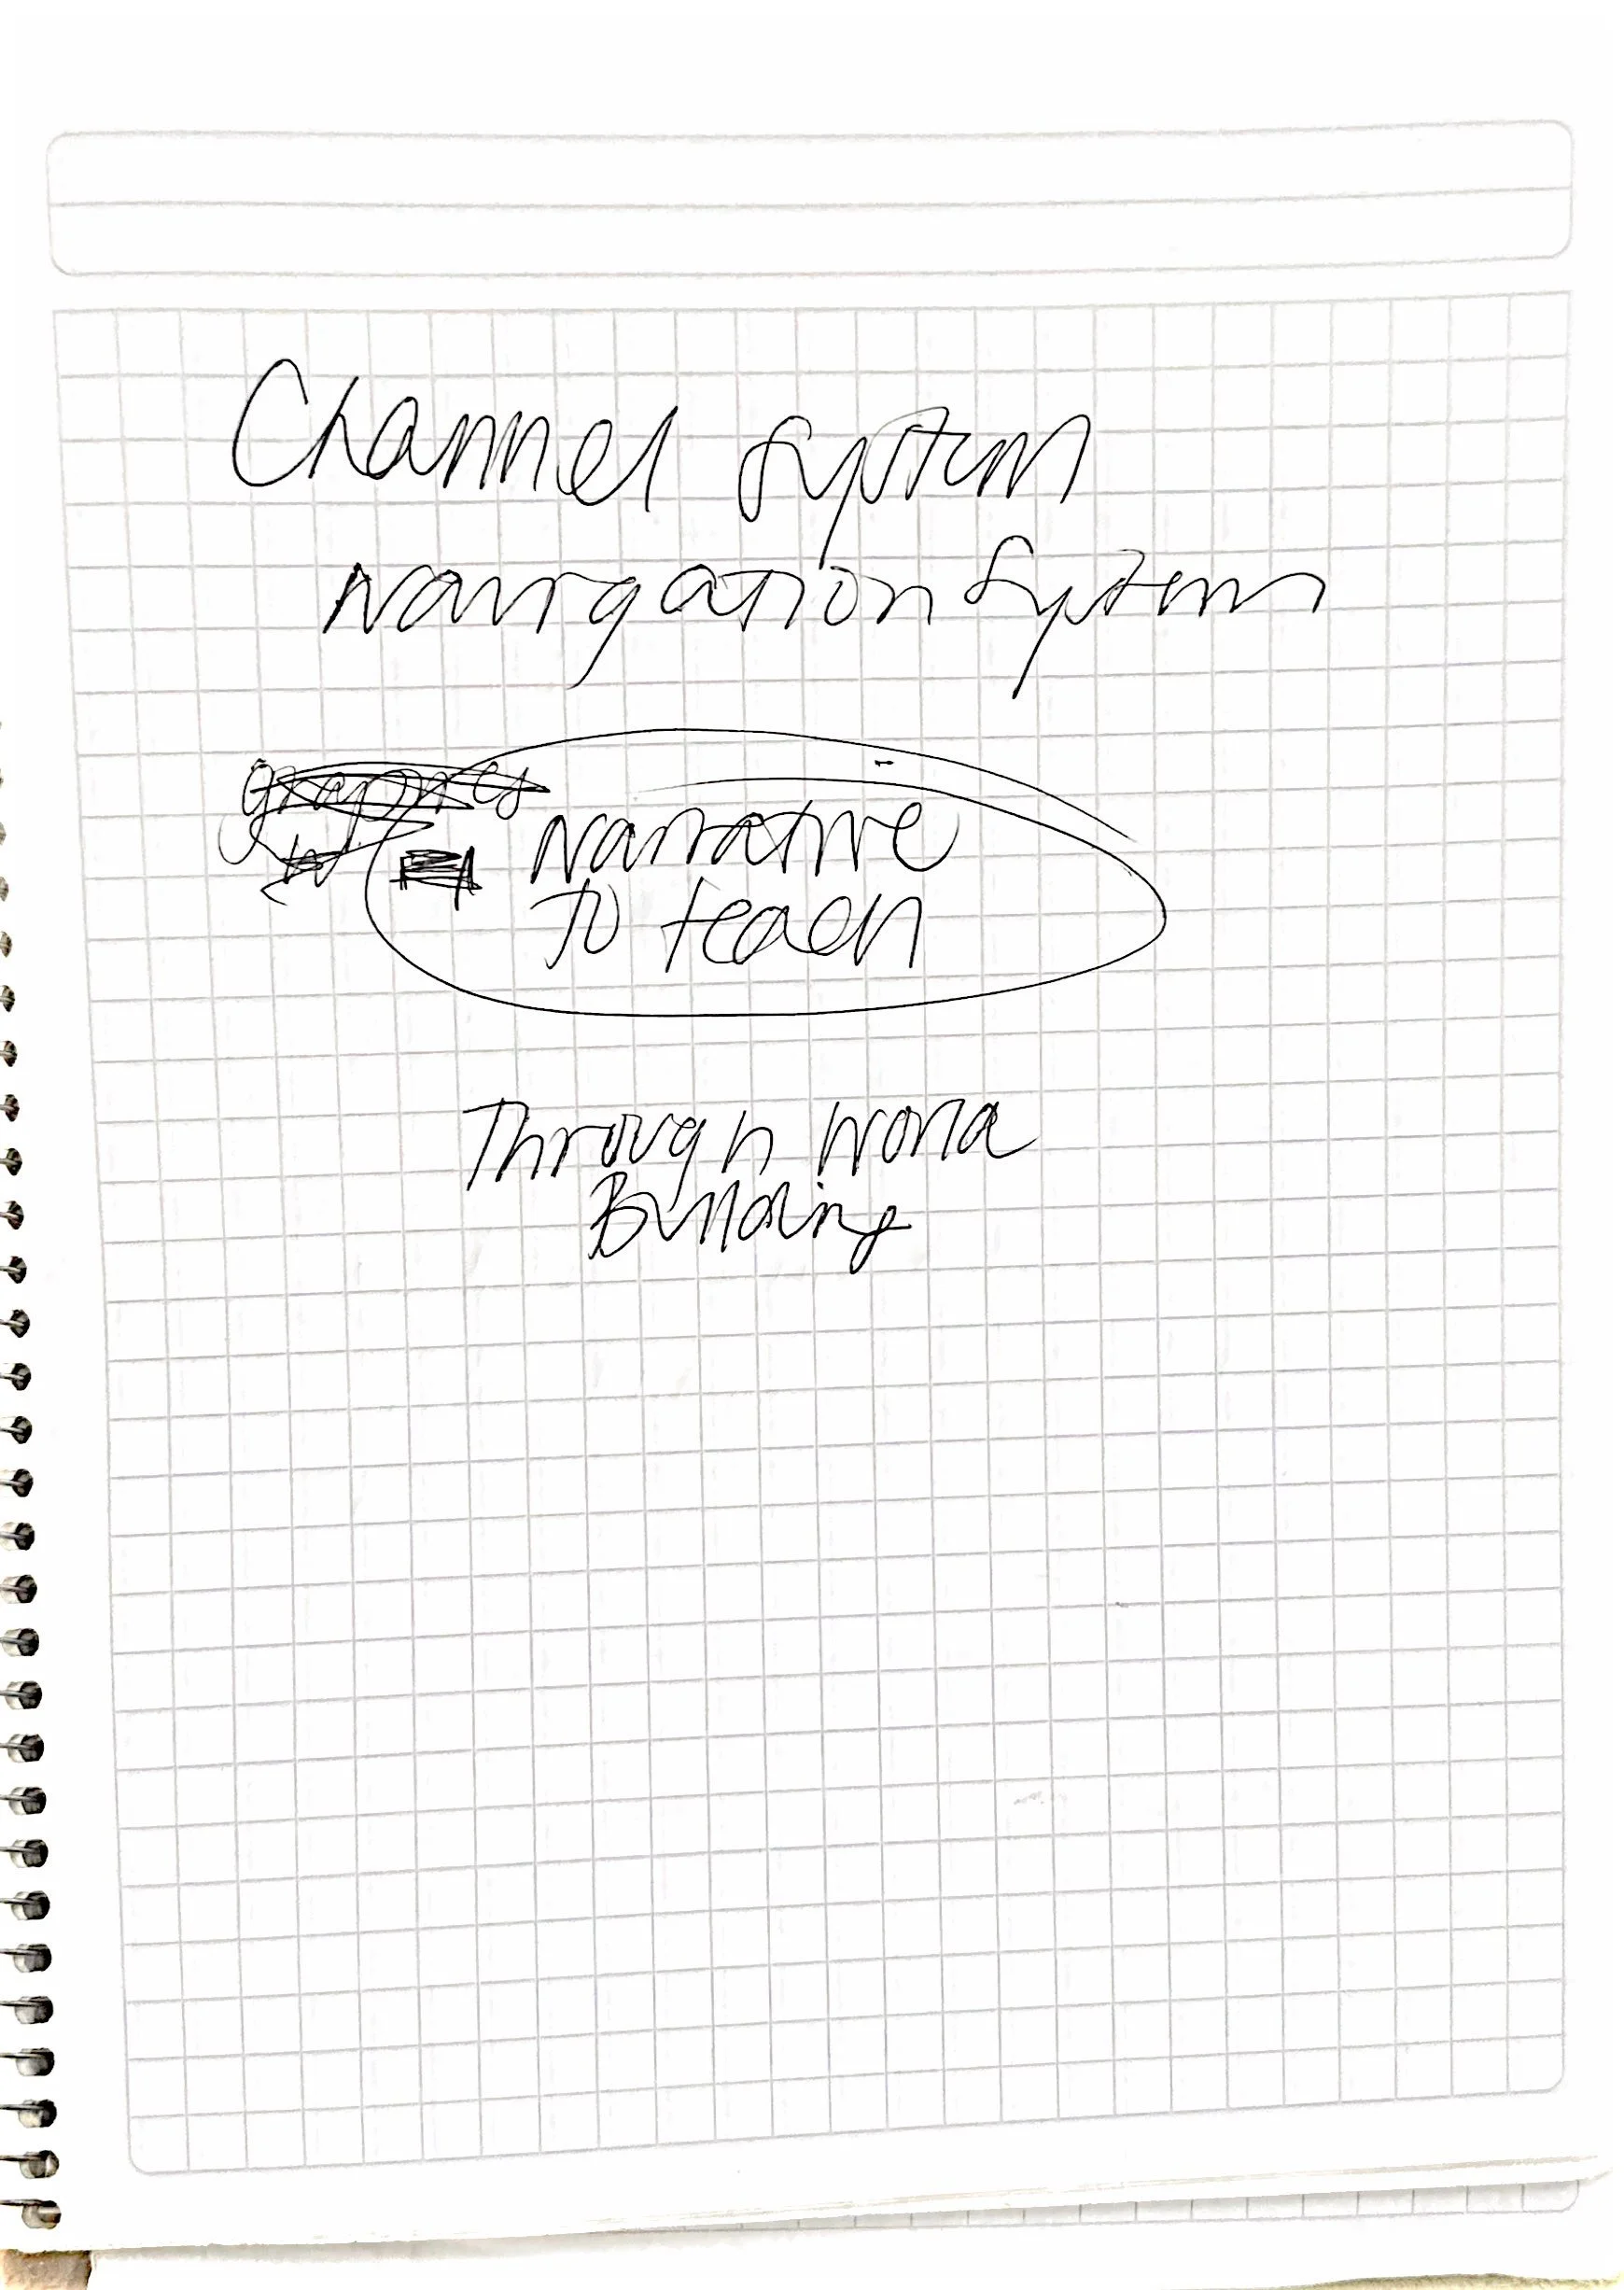 Channel System
Navigation System
graphics
Narrative
To teach
Through World
Building